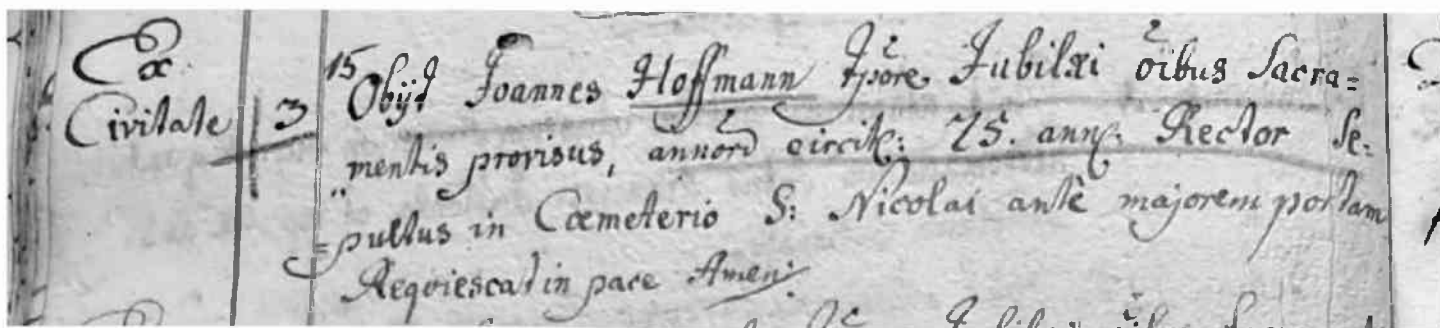 Ex
Civitate
3
15 Obijt Joannes Hoffmann tp̃ore Jubilæi oĩbus Sacra=
mentis provisus, annorũ circit: 75. ann: Rector Se=
pultus in Cœmeterio S: Nicolai antè majorem portam
Requiescat in pace Amen.